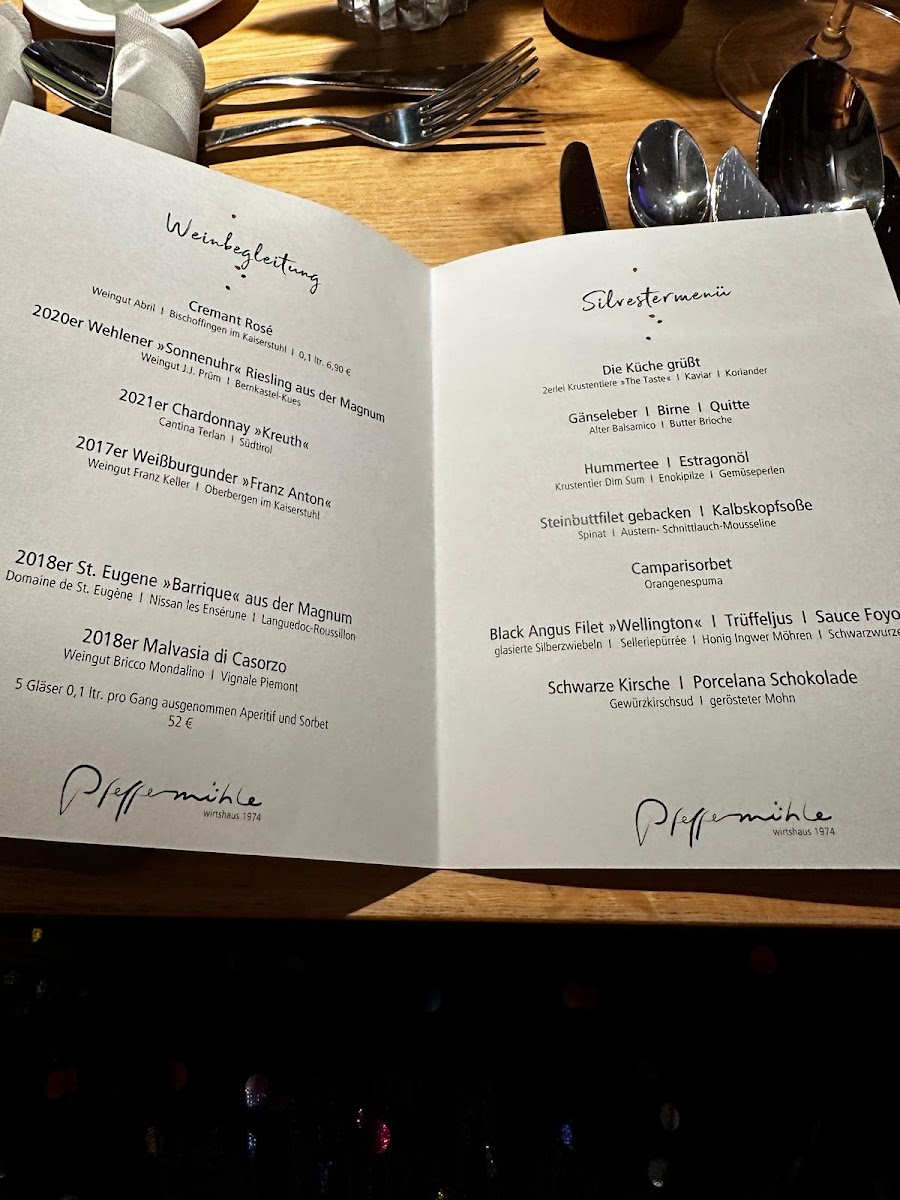 Weinbegleitung
Cremant Rosé
Weingut Abril I Bischoffingen im Kaiserstuhl I 0,1 ltr. 6,90 €
2020er Wehlener »Sonnenuhr« Riesling aus der Magnum
Weingut J.J. Prüm I Bernkastel-Kues
2021er Chardonnay »Kreuth«
Cantina Terlan I Südtirol
2017er Weißburgunder »Franz Anton«
Weingut Franz Keller I Oberbergen im Kaiserstuhl
2018er St. Eugene »Barrique« aus der Magnum
Domaine de St. Eugène I Nissan les Ensérune I Languedoc-Roussillon
2018er Malvasia di Casorzo
Weingut Bricco Mondalino I Vignale Piemont
5 Gläser 0,1 ltr. pro Gang ausgenommen Aperitif und Sorbet
52 €
Pfeffermühle
wirtshaus 1974
Silvestermenü
Die Küche grüßt
2erlei Krustentiere »The Taste« I Kaviar I Koriander
Gänseleber I Birne I Quitte
Alter Balsamico I Butter Brioche
Hummertee I Estragonöl
Krustentier Dim Sum I Enokipilze I Gemüseperlen
Steinbuttfilet gebacken I Kalbskopfsoße
Spinat I Austern- Schnittlauch-Mousseline
Camparisorbet
Orangenespuma
Black Angus Filet »Wellington« I Trüffeljus I Sauce Foyo
glasierte Silberzwiebeln I Selleriepürrée I Honig Ingwer Möhren I Schwarzwurze
Schwarze Kirsche I Porcelana Schokolade
Gewürzkirschsud I gerösteter Mohn
Pfeffermühle
wirtshaus 1974